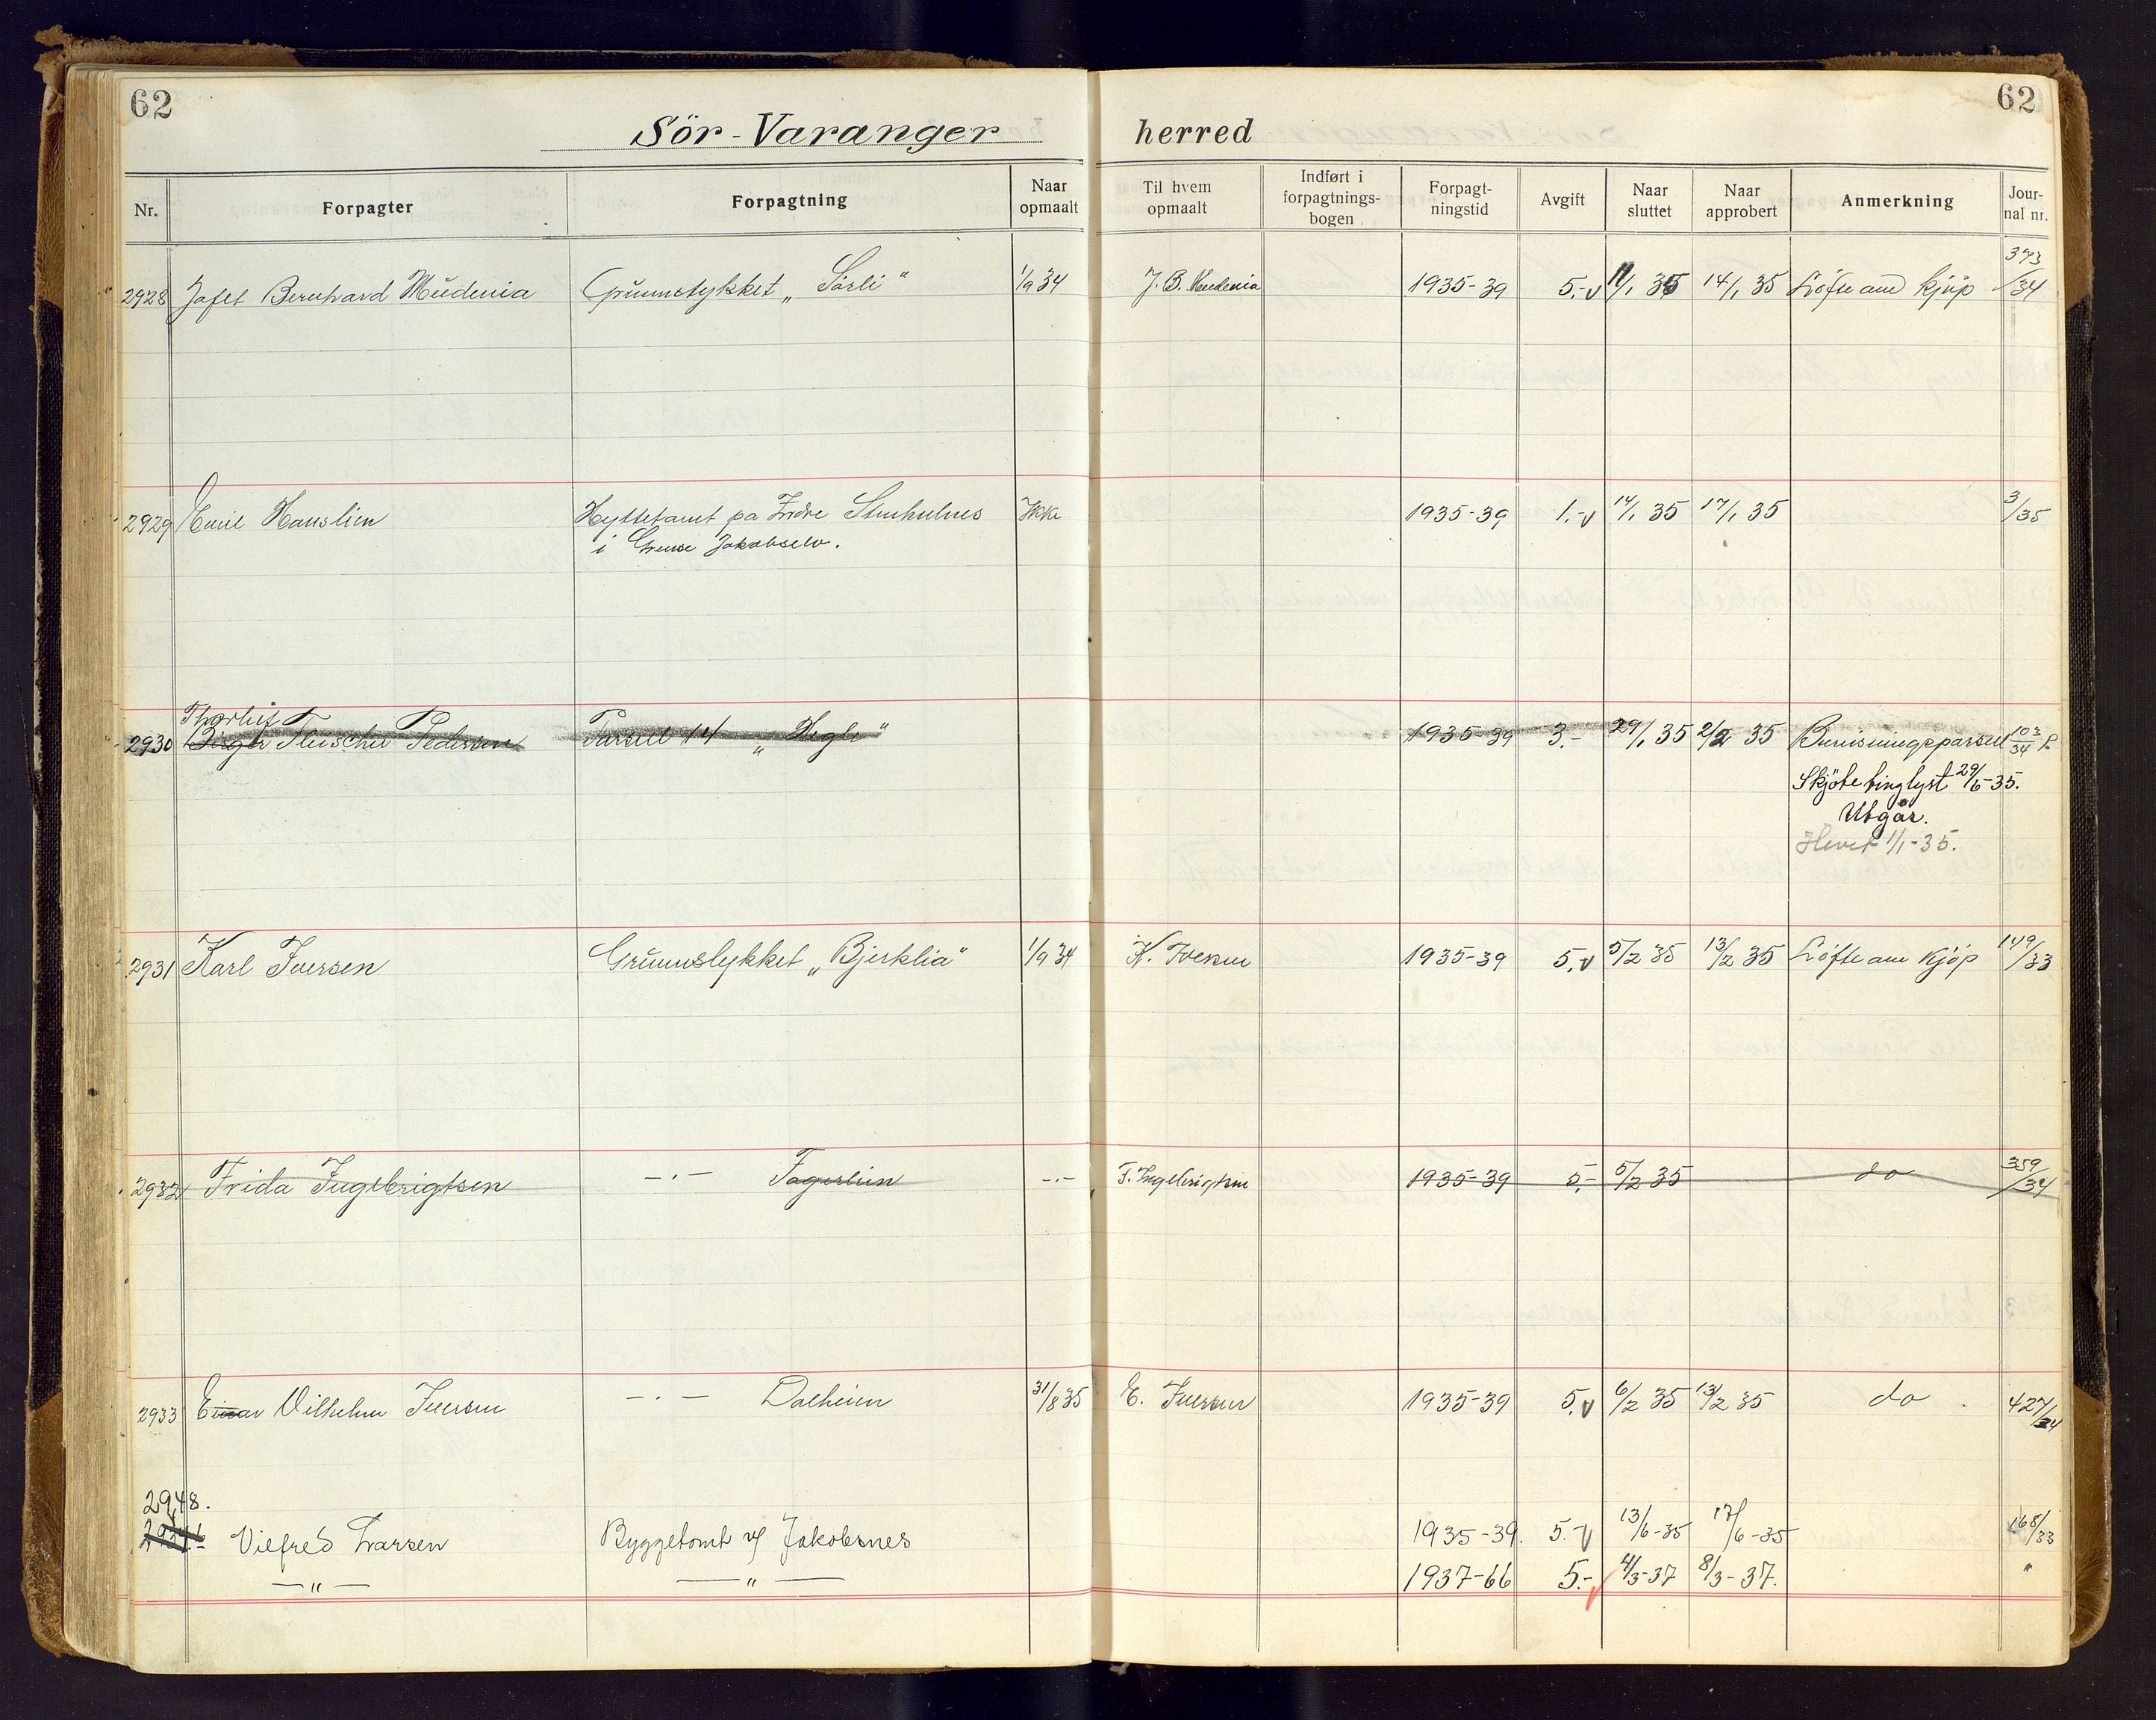 62
62
Sör-Varanger herred
Nr. Forpagter Forpagtning Naar opmaalt Til hvem opmaalt Indført i forpagtnings-bogen Forpagt-ningstid Avgift Naar sluttet Naar approbert Anmerkning Jour-nal nr.
2928 Jafet Bernhard Mudenia Grunnstykket „Sörli" 1/9 34 J. B. Mudenia 1935-39 5.- v 11/1 35 14/1 35 Löfte om kjöp 373/34
2929 Emil Hanslien Hyttetomt på Indre 1935-39 1.- v 14/1 35 17/1 35 3/35
i Grense Jakobselv.
Thorleif
2930 Birger Fleischer Pedersen Parsell 14 „Hegli" 1935-39 3.- 29/1 35 2/2 35 Bureisningsparsell 103/34
Skjöte tinglyst 29/6-35.
Utgår.
Hevet 1/1-35.
2931 Karl Iversen Grunnstykket „Bjerklia" 1/9 34 K. Iversen 1935-39 5. v 5/2 35 13/2 35 Löfte om kjöp 149/33
2932 Frida Ingebrigtsen —·— Fagerlien —·— F. Ingebrigtsen 1935-39 5.- 5/2 35 do 359/34
2933 Einar Vilhelm Iversen —·— Dalheim 31/8 35 E. Iversen 1935-39 5. v 6/2 35 13/2 35 do 427/34
2948.
Vilfred Larsen Byggetomt v/ Jakobsnes 1935-39. 5.- v 13/6-35 17/6-35 168/33
—„— —„— 1937-66 5.- v 4/3-37 8/3-37. "